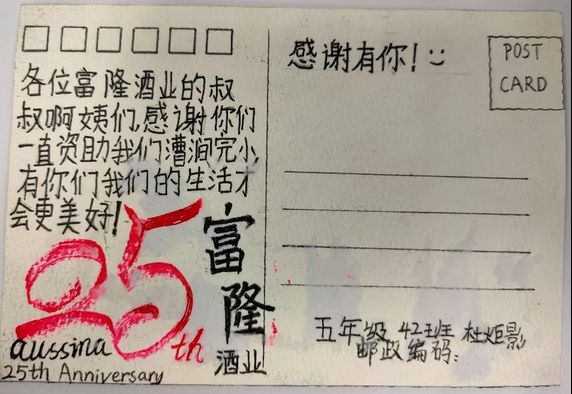 各位富隆酒业的叔
叔啊姨们,感谢你们
一直资助我们漕涧完小,
有你们我们的生活才
会更美好!
25th
富隆
酒业
aussina
25th Anniversary
感谢有你!
POST
CARD
五年级 42班 杜炬影
邮政编码: